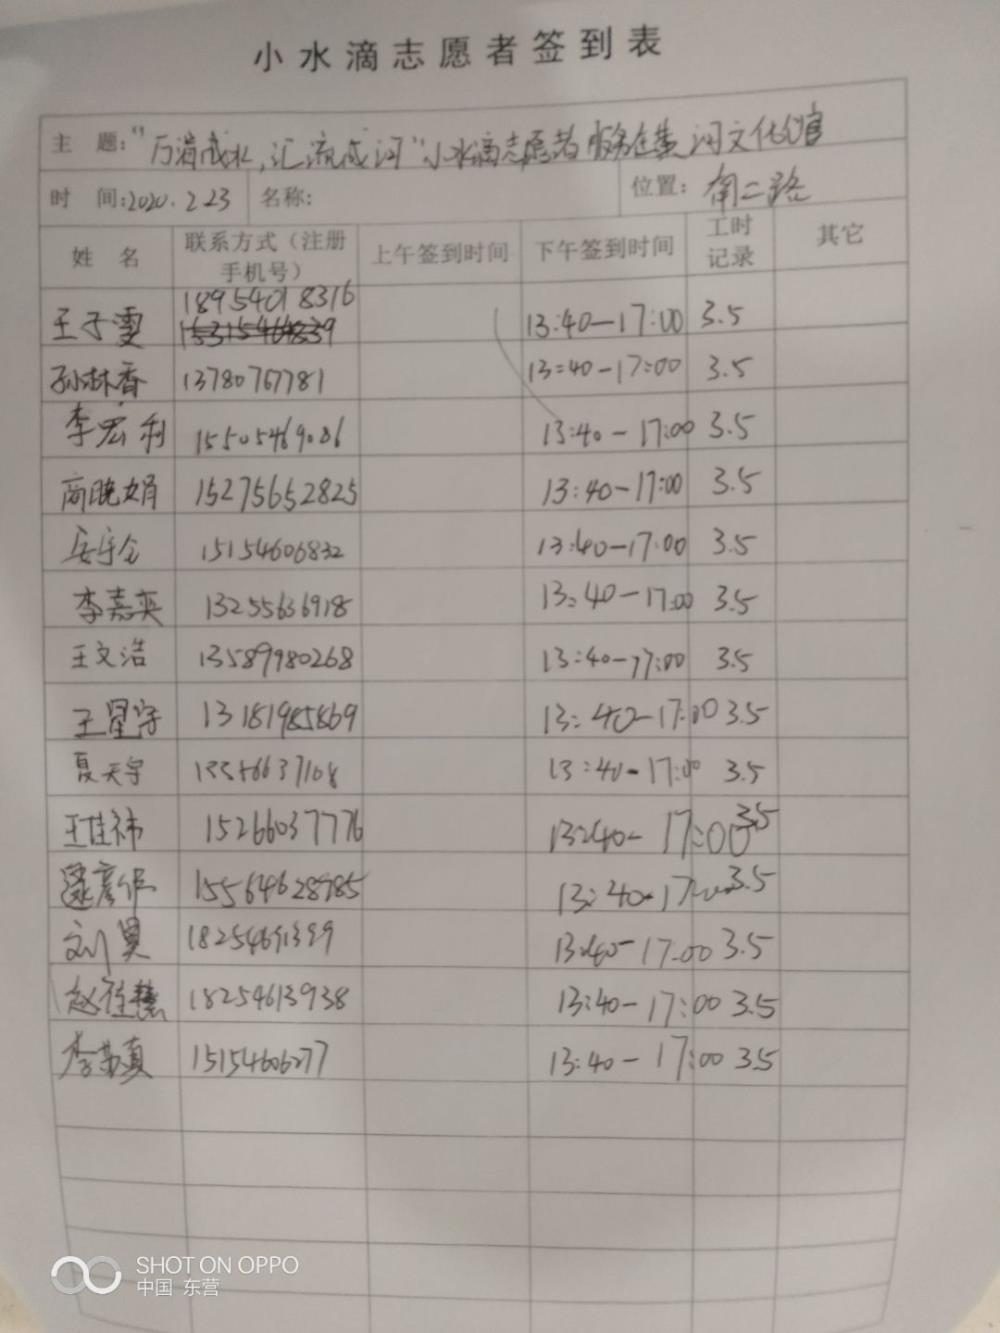 小水滴志愿者签到表
主 题:"万滴成水,汇流成河"小水滴志愿者服务在黄河文化馆
时 间:2020.2.23 名称: 位置: 南二路
姓 名 联系方式(注册手机号) 上午签到时间 下午签到时间 工时记录 其它
王子雯 18954018316 13:40-17:00 3.5
孙林香 13780767781 13:40-17:00 3.5
李宏利 15505469086 13:40-17:00 3.5
商晓娟 15275652825 13:40-17:00 3.5
15154606832 13:40-17:00 3.5
李嘉奕 13255636918 13:40-17:00 3.5
王文浩 13589980268 13:40-17:00 3.5
王星宇 13181985869 13:40-17:00 3.5
夏天宇 13356637108 13:40-17:00 3.5
王佳祎 15266037776 13:40-17:00 3.5
15564628985 13:40-17:00 3.5
刘昊 18254691399 13:40-17:00 3.5
赵 18254613938 13:40-17:00 3.5
李 真 15154606277 13:40-17:00 3.5
SHOT ON OPPO
中国 东营